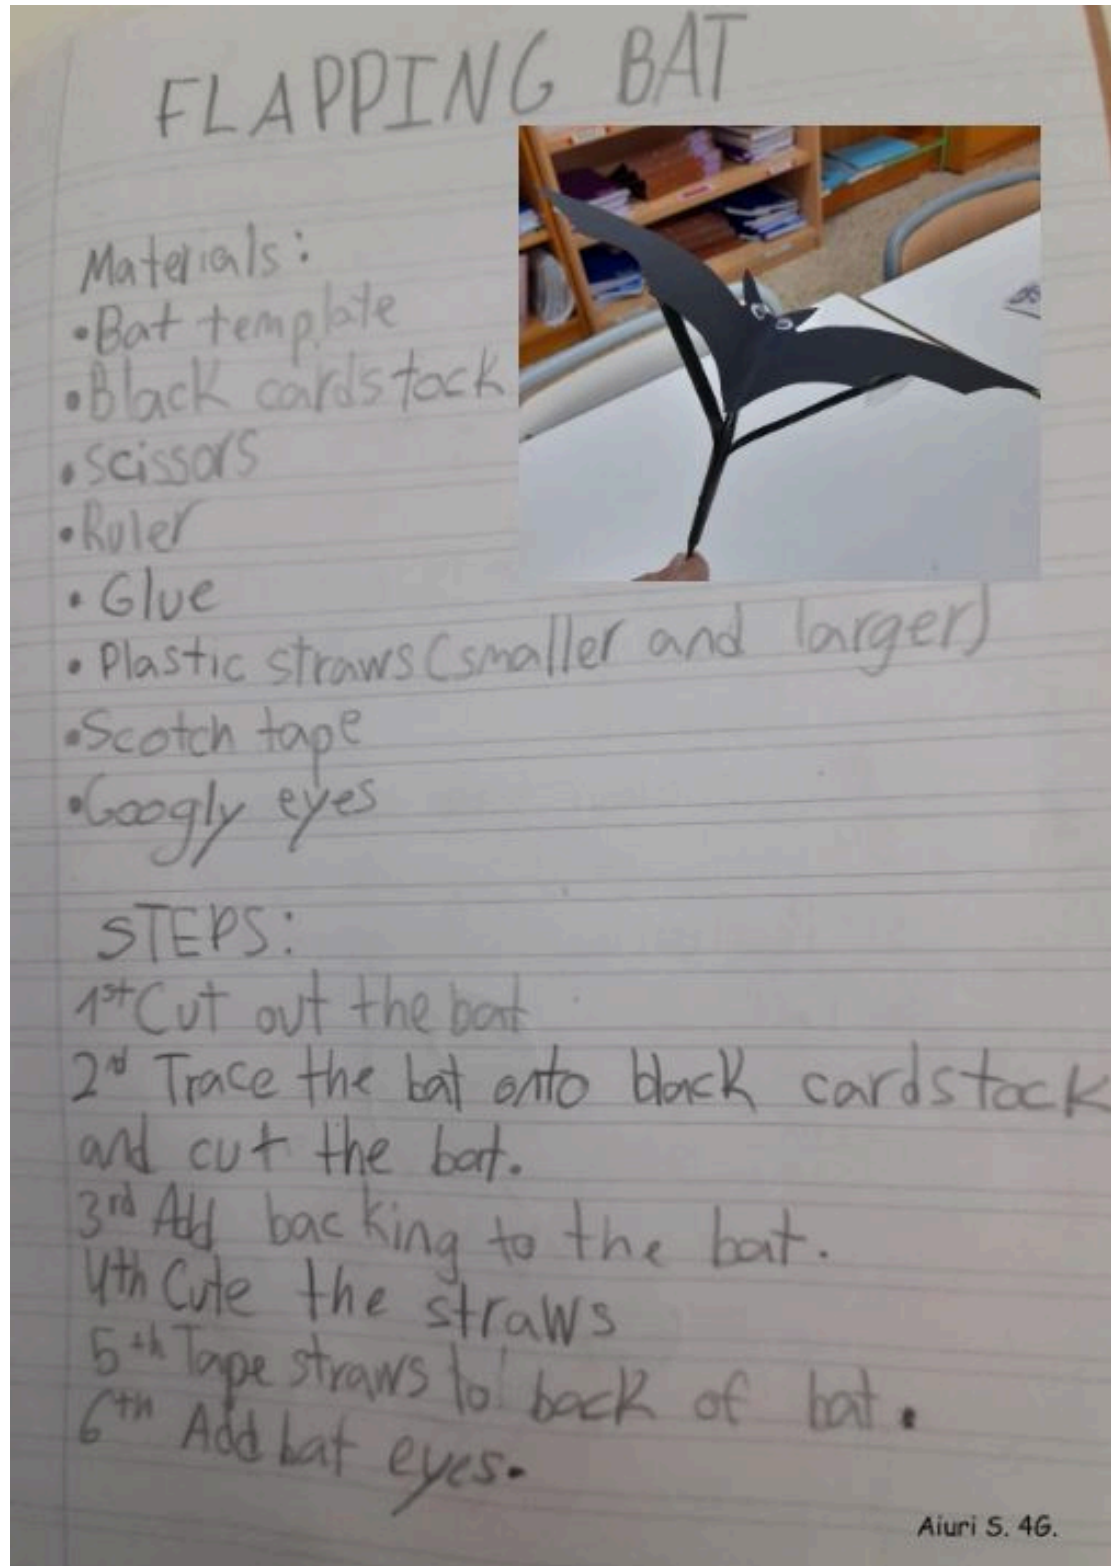 FLAPPING BAT
Materials:
•Bat template
•Black cardstock
•scissors
•Ruler
•Glue
•Plastic straws (smaller and larger)
•Scotch tape
•Googly eyes
STEPS:
1st Cut out the bat
2nd Trace the bat onto black cardstock
and cut the bat.
3rd Add backing to the bat.
4th Cute the straws
5th Tape straws to back of bat.
6th Add bat eyes.
Aiuri S. 4G.